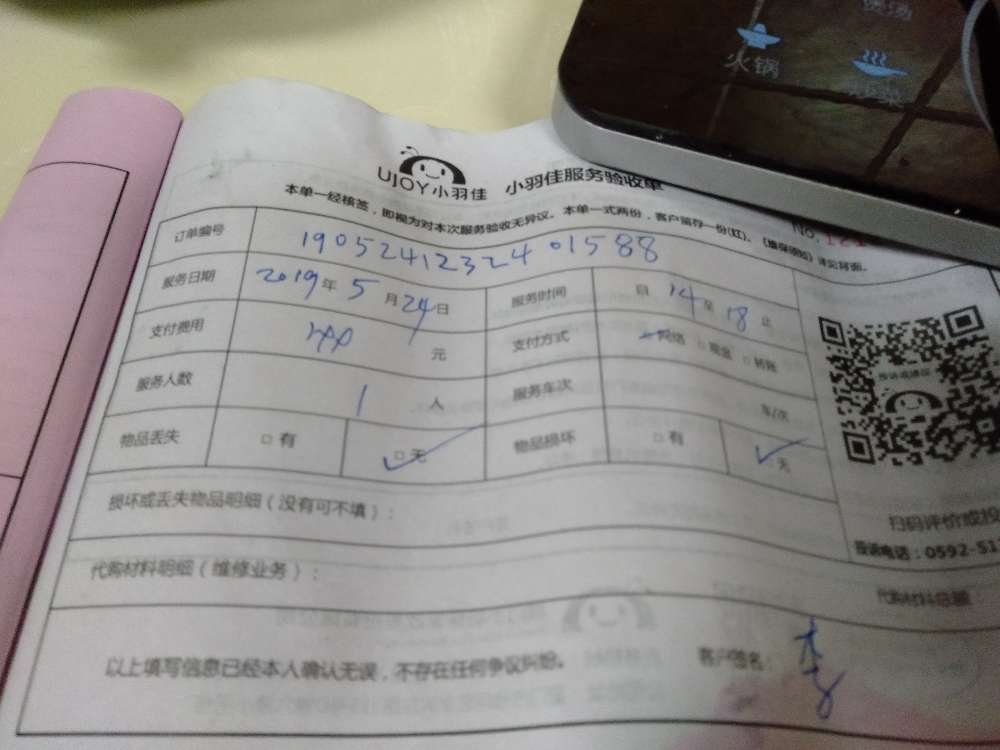 火锅
UJOY小羽佳 小羽佳服务验收单
No.
本单一经核签，即视为对本次服务验收无异议。本单一式两份，客户留存一份(红)。《质保须知》详见背面。
订单编号 1905241232401588
服务日期 2019年5月24日 服务时间 自14至18止
支付费用 元 支付方式 网络 □现金 □转账
服务人数 1人 服务车次 车/次
物品丢失 □有 □无 物品损坏 □有 □无
损坏或丢失物品明细（没有可不填）：
扫码评价或投
投诉电话：0592-51
代购材料明细（维修业务）： 代购材料总额
以上填写信息已经本人确认无误，不存在任何争议纠纷。 客户签名：